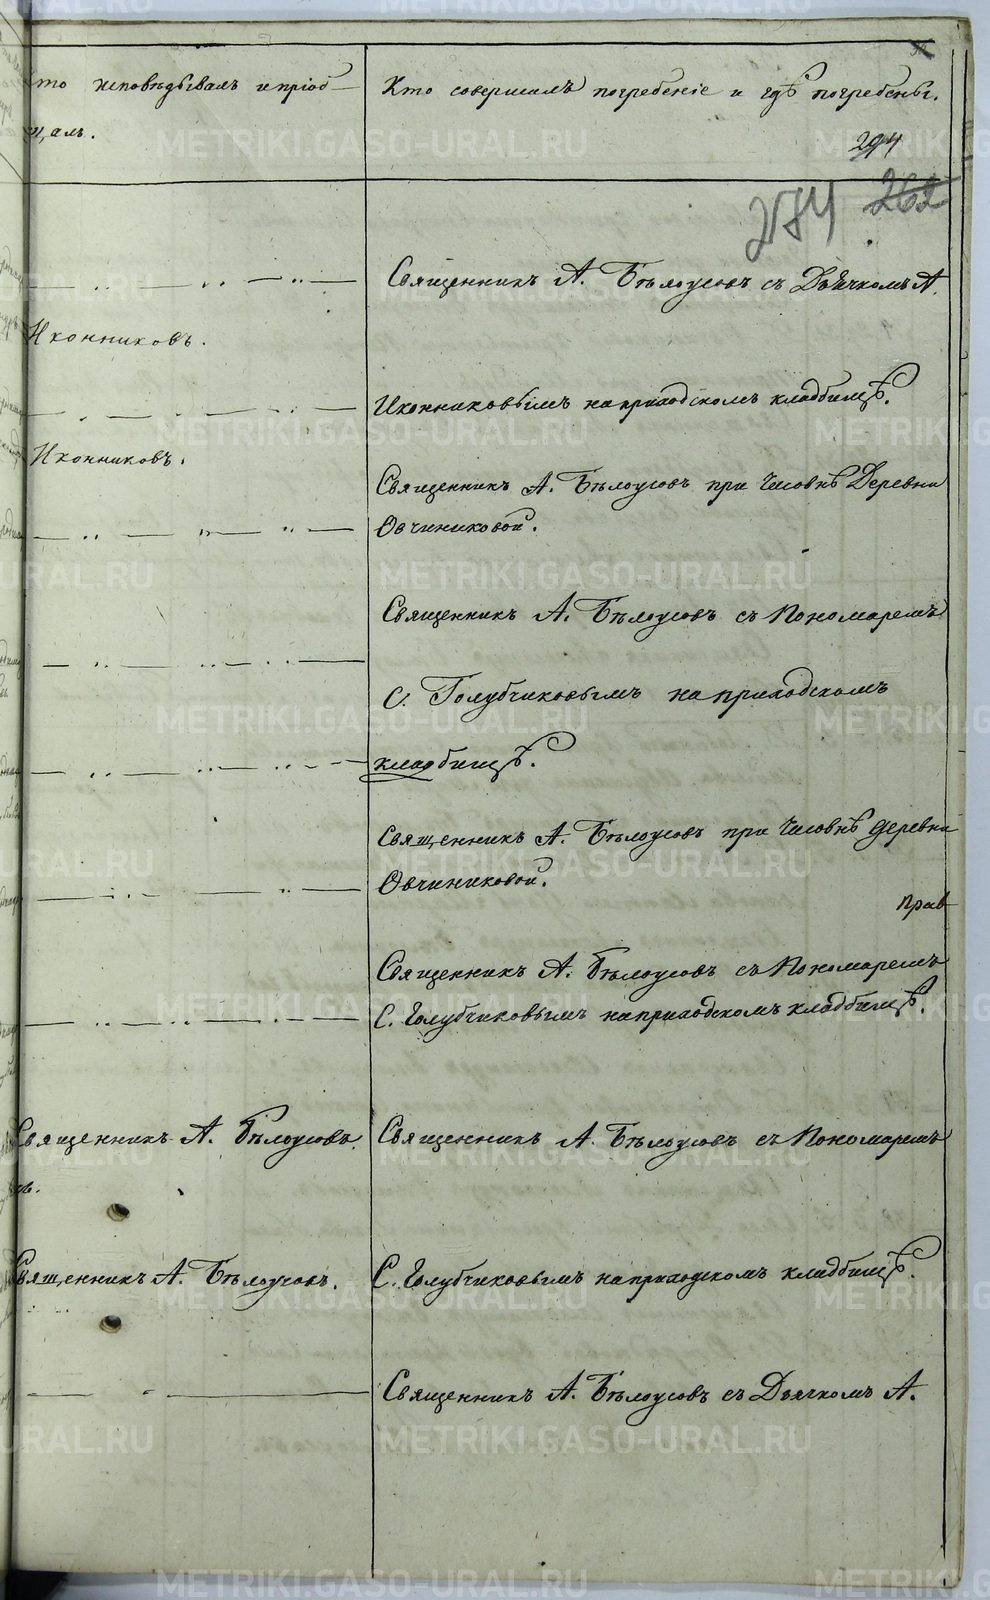 Кто исповѣдывалъ и пріоб-
щалъ.
Кто совершалъ погребеніе и гдѣ погребены.
294
274 262
Священникъ А. Бѣлоусовъ съ Дьячкомъ А.
Иконниковъ.
Иконниковымъ на приходскомъ кладбищѣ.
Иконниковъ.
Священникъ А. Бѣлоусовъ при Часовнѣ Деревни
Овчиниковой.
Священникъ А. Бѣлоусовъ съ Пономаремъ
С. Голубчиковымъ на приходскомъ
кладбищѣ.
Священникъ А. Бѣлоусовъ при Часовнѣ деревни
Овчиниковой.
прав
Священникъ А. Бѣлоусовъ съ Пономаремъ
С. Голубчиковымъ на приходскомъ кладбищѣ.
Священникъ А. Бѣлоусовъ. Священникъ А. Бѣлоусовъ съ Пономаремъ
Священникъ А. Бѣлоусовъ. С. Голубчиковымъ на приходскомъ кладбищѣ.
Священникъ А. Бѣлоусовъ съ Дьячкомъ А.
METRIKI.GASO-URAL.RU